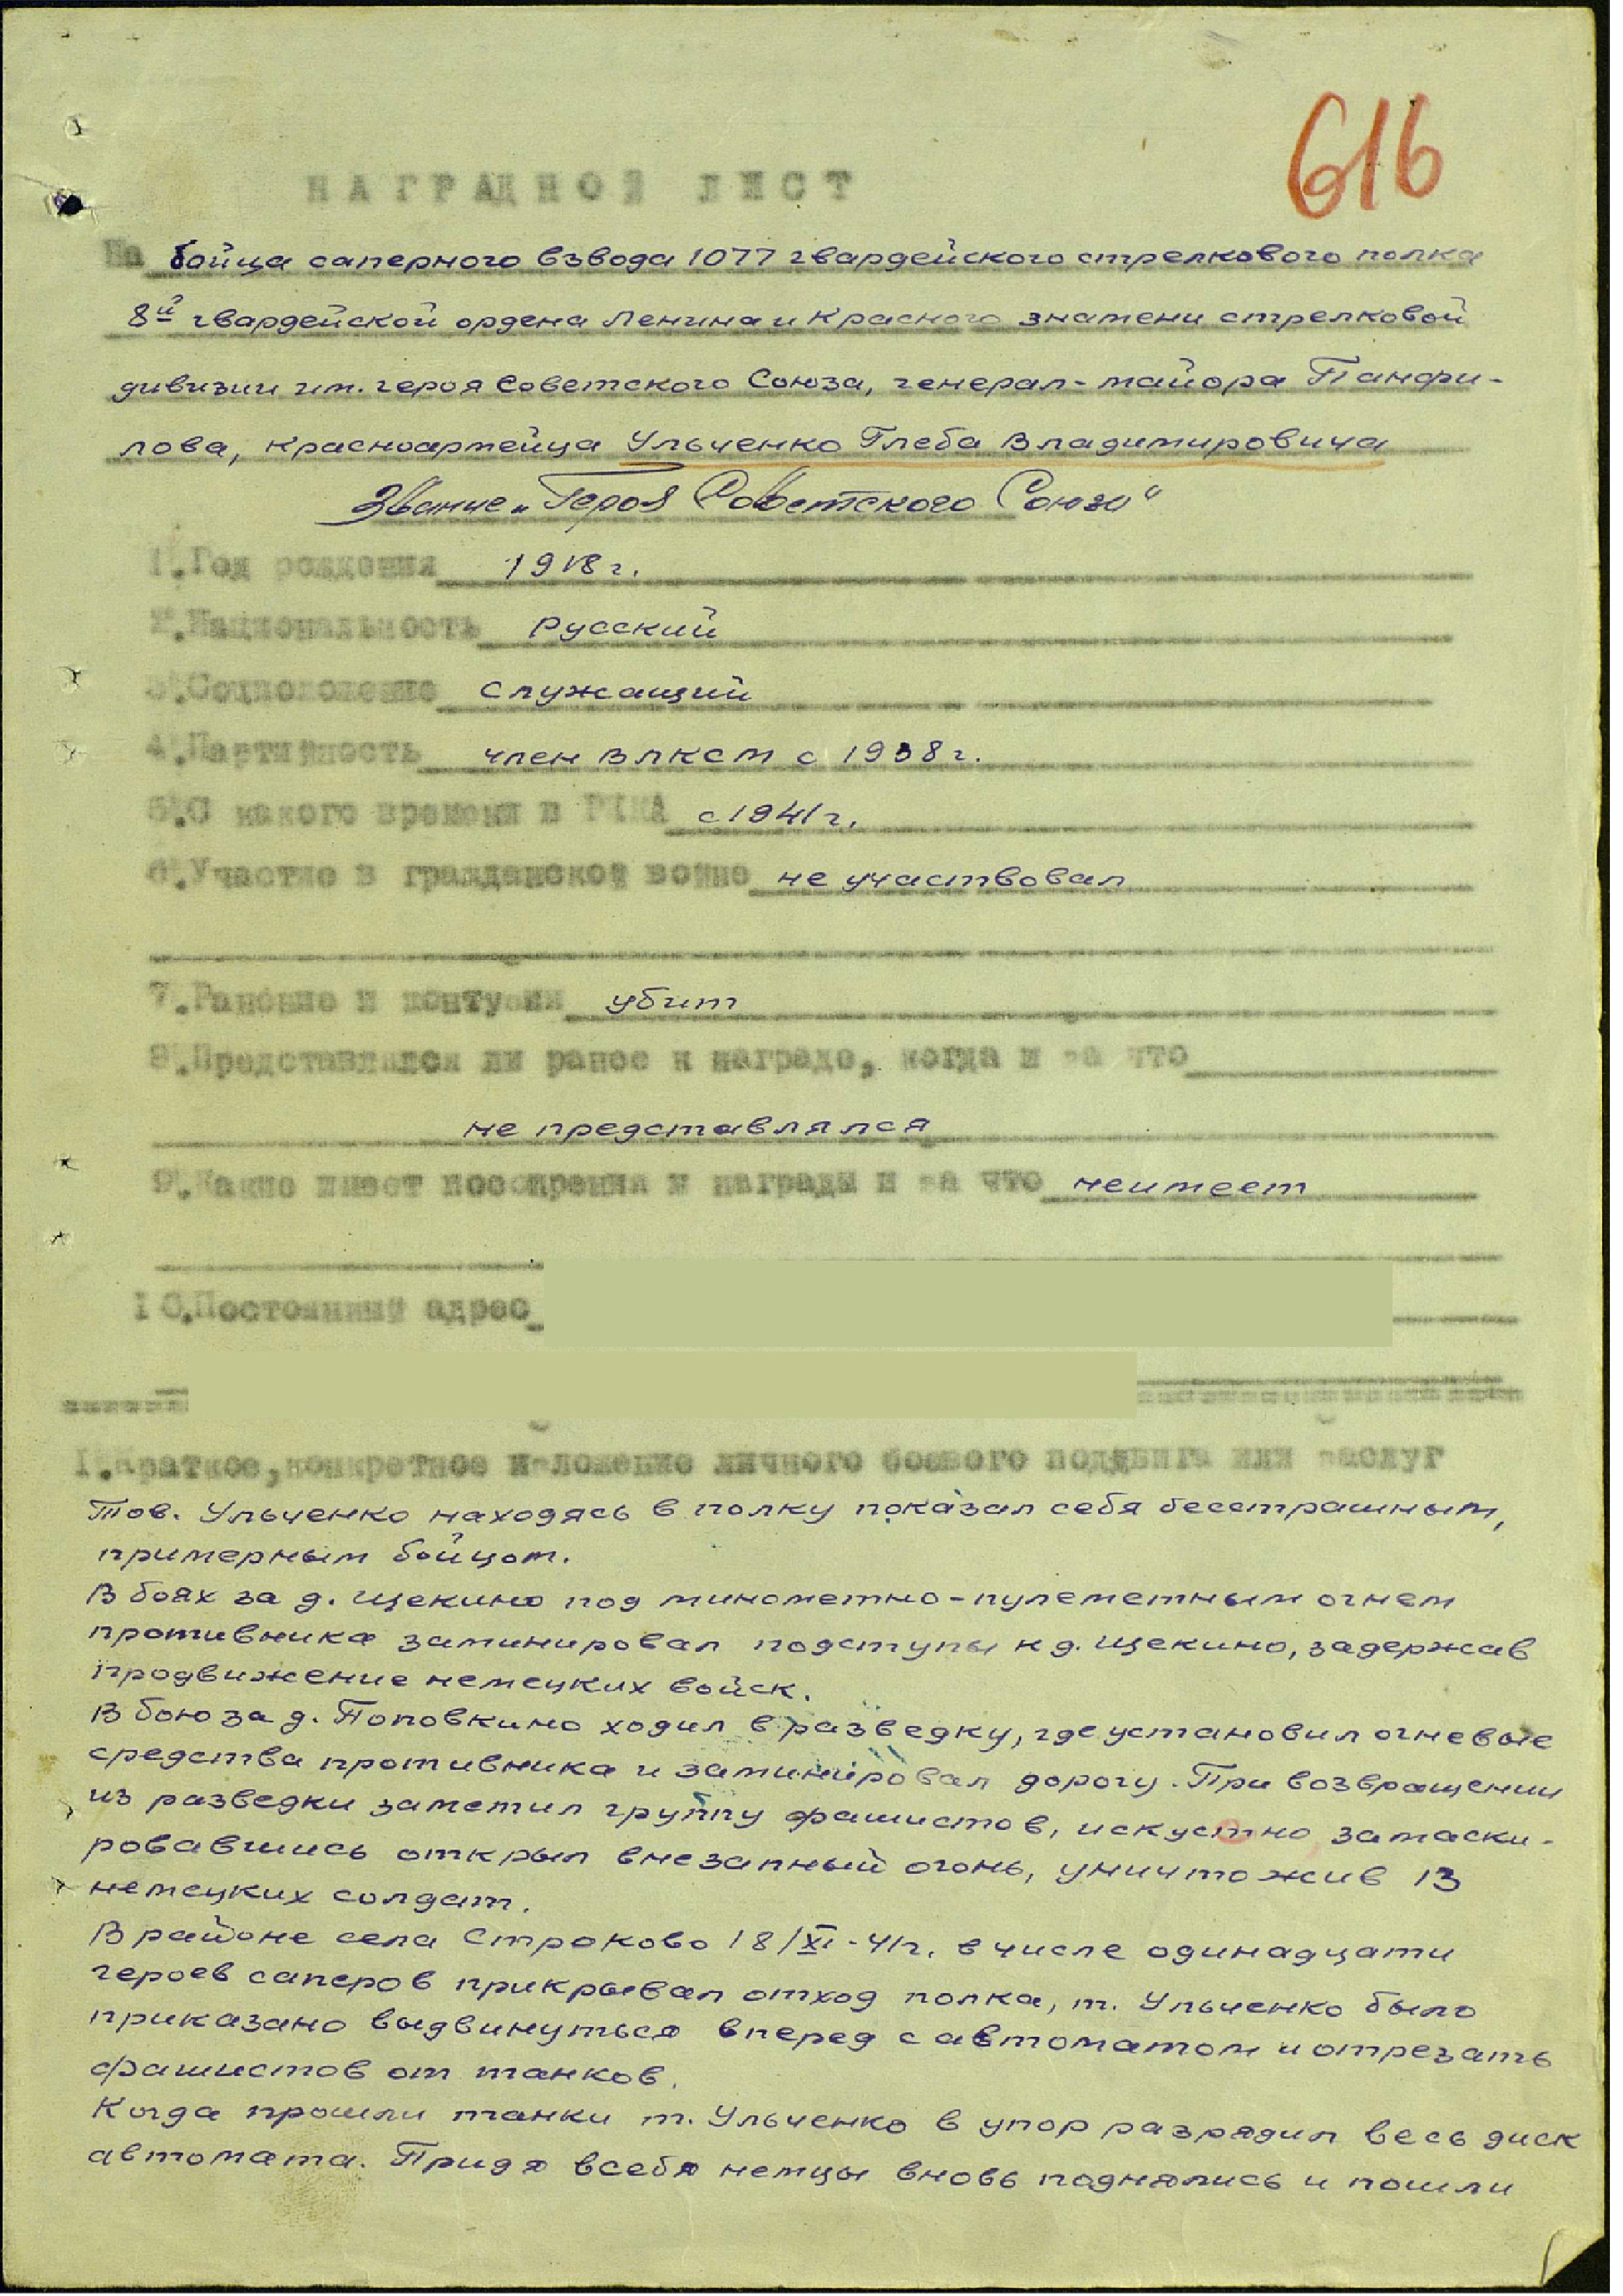 616
НАГРАДНОЙ ЛИСТ
На бойца саперного взвода 1077 гвардейского стрелкового полка
8й гвардейской ордена Ленина и Красного знамени стрелковой
дивизии им. героя Советского Союза, генерал-майора Панфи-
лова, красноармейца Ульченко Глеба Владимировича
Звание „Героя Советского Союза"
1.Год рождения 1918 г.
2.Национальность русский
3.Соцположение служащий
4.Партийность член ВЛКСМ с 1938 г.
5.С какого времени в РККА с 1941 г.
6.Участие в гражданской войне не участвовал
7.Ранение и контузии убит
8.Представлялся ли ранее к награде, когда и за что
не представлялся
9.Какие имеет поощрения и награды и за что неимеет
10.Постоянный адрес
1.Краткое, конкретное изложение личного боевого подвига или заслуг
Тов. Ульченко находясь в полку показал себя бесстрашным,
примерным бойцом.
В боях за д. Щекино под минометно-пулеметным огнем
противника заминировал подступы к д. Щекино, задержав
продвижение немецких войск.
В бою за д. Поповкино ходил в разведку, где установил огневые
средства противника и заминировал дорогу. При возвращении
из разведки заметил группу фашистов, искустно замаски-
ровавшись открыл внезапный огонь, уничтожив 13
немецких солдат.
В районе села Строково 18/XI-41г. в числе одинадцати
героев саперов прикрывал отход полка, т. Ульченко было
приказано выдвинуться вперед с автоматом и отрезать
фашистов от танков.
Когда прошли танки т. Ульченко в упор разрядил весь диск
автомата. Придя всебя немцы вновь поднялись и пошли